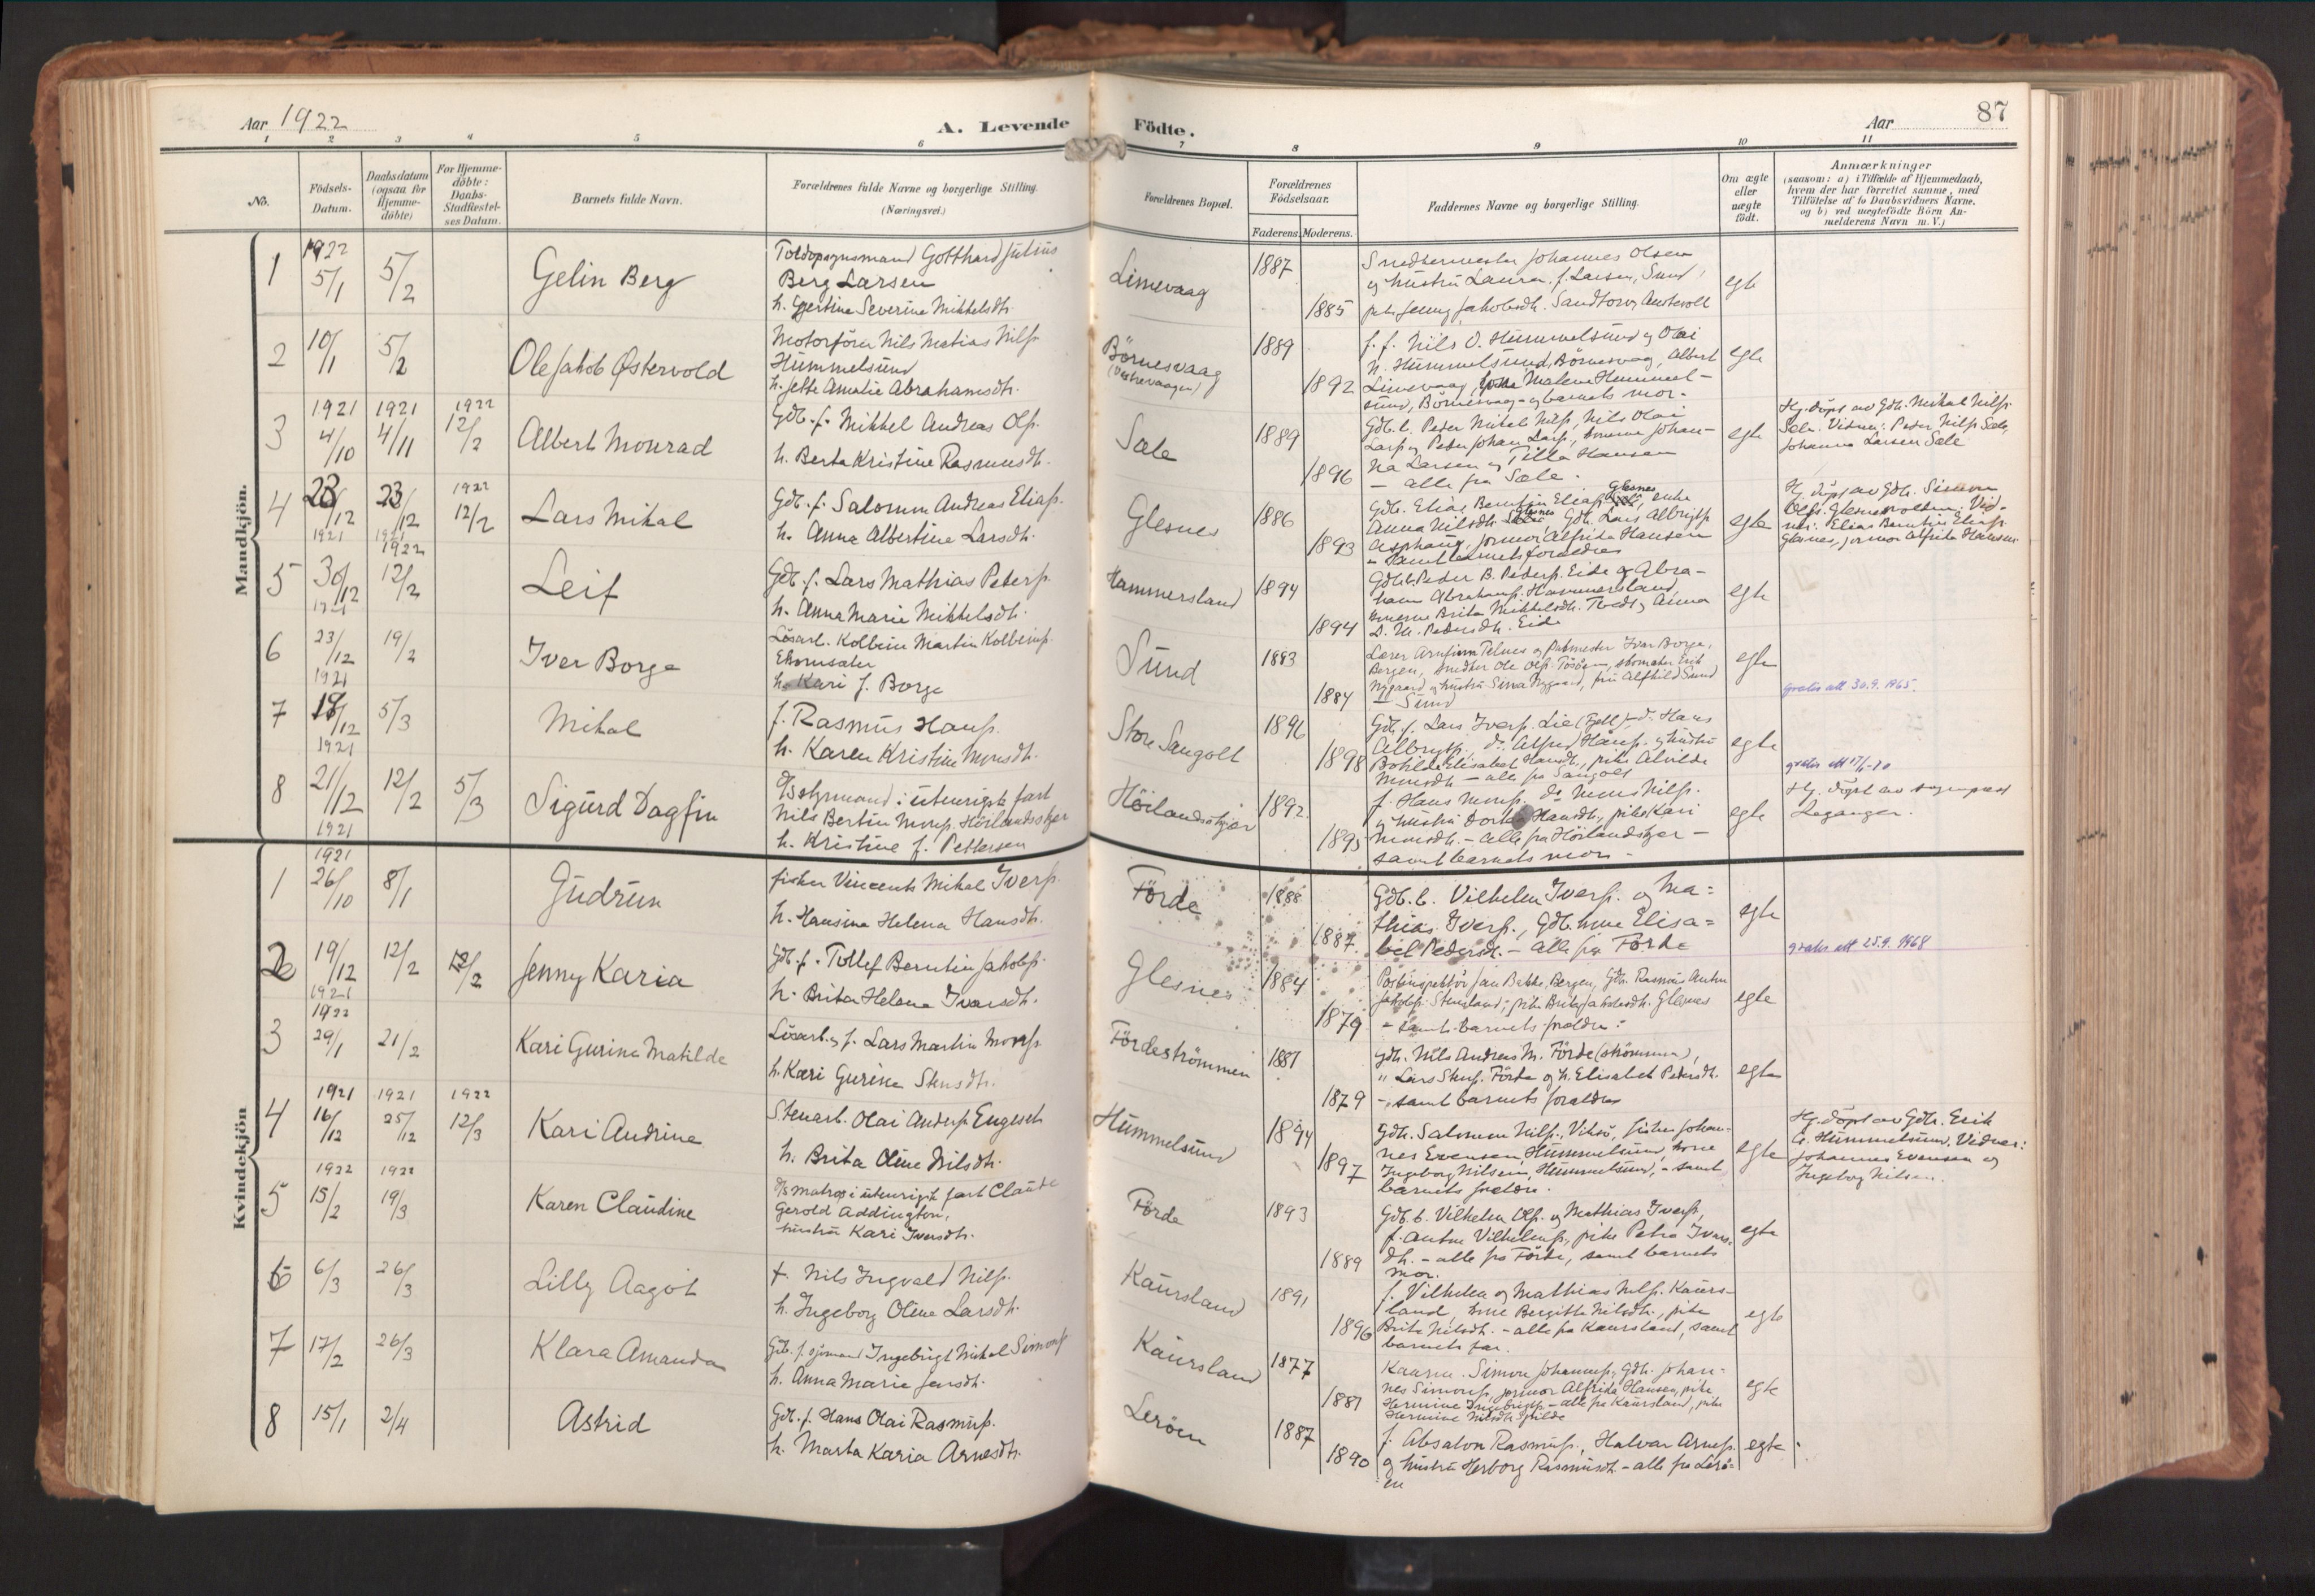 Aar 1922
A. Levende
Födte.
Aar
87
1 2 3 4 5 6 7 8 9 10 11
No.
Födsels-
Datum.
Daabsdatum
(ogsaa for
Hjemme-
döbte)
For Hjemme-
döbte:
Daabs-
Stadfæstel-
ses Datum.
Barnets fulde Navn.
Forældrenes fulde Navne og borgerlige Stilling.
(Næringsvei.)
Forældrenes Bopæl.
Forældrenes
Födselsaar.
Faderens. Moderens.
Faddernes Navne og borgerlige Stilling.
Om ægte
eller
uægte
födt.
Anmærkninger
(saasom: a) i Tilfælde af Hjemmedaab,
hvem der har forrettet samme, med
Tilföielse af to Daabsvidners Navne.
og b) ved uægtefödte Börn An-
melderens Navn m. V.)
Mandkjön.
1
1922
5/1
5/2
Gelin Berg
Toldopsynsmand Gotthard Julius
Berg Larsen
h. Gjertine Severine Mikkelsdtr.
Limevaag
1887
1885
Smedmester Johannes Olsen
og hustru Laura f. Larsen, Sund,
pike Jenny Jakobsdt. Sandtorv
egte
2
10/1
5/2
Ole Jakob Østervold
Motorförer Nils Matias Nilss.
Hummelsund
h. Jette Amalie Abrahamsdtr.
Börnesvaag
(Vestrevaagen)
1889
1892
f. f. Nils O. Hummelsund og Olai
N. Hummelsund, Börnesvaag, Albert
Limevaag, Malene Hummel-
sund, Börnesvaag - og barnets mor.
egte
3
1921
4/10
1921
4/11
1922
12/2
Albert Monrad
Gdb. f. Mikkel Andreas Ols.
h. Berta Kristine Rasmusdt.
Sæle
1889
1896
Gdb. b. Peder Mikal Nils, Nils Olai
Lars og Peder Johan Lars, konerne Johan-
na Larsen og Tilla Hansen
- alle fra Sæle.
egte
Hj. döpt av Gdb. Mikal Nils.
Sæle. Vidner: Peder Nils Sæle,
Johanna Larsen Sæle
4
23/12
1921
23/12
1921
1922
12/2
Lars Mikal
Gdb. f. Salomon Andreas Elias.
h. Anna Albertine Larsdt.
Glesnes
1886
1893
Gdb. Elias Berntin Elias Glesnes, enke
Anna Nilsdt. Glesnes Gdb. Lars Albrigts
jormor Alfrida Hansen
- samt barnets foraldre
egte
Hj. döpt av Gdb. Simon
Ols. Glesnesvolden. Vid-
ner: Elias Berntin Elias
Glesnes, jormor Alfrida Hansen.
5
30/12
1921
1922
12/2
Leif
Gdb. f. Lars Mathias Peders.
h. Anna Marie Mikkelsdt.
Hammersland
1894
1894
Gdb. b. Peder B. Peders. Eide og Abra-
ham Abrahams. Hammersland,
konerne Brita Mikkelsdt. Tveit og Anna
D. M. Pedersdt. Eide
egte
6
23/12
1921
19/2
Iver Borge
Lösarb. Kolbein Martin Kolbeins.
Ekornsæter
h. Kari f. Borge
Sund
1883
1884
Lærer Arnfinn Telnes og Iver Borge,
Bergen, snedker Ole Ols. Tösöen, skomaker Erik
Nygaard og hustru Sina Nygaard, frk Alfhild Sund
- Sund
egte
gratis att 30.9.1965.
7
18/12
1921
5/3
Mikal
f. Rasmus Hans.
h. Karen Kristine Monsdt.
Store Sangolt
1896
1898
Gdb. f. Lars Ivers. Lie (Fjell), do. Hans
Albrigts, do. Alfred Hans. og hustru
Bothilde Elisabet Hansdt., pike Alvilde
Monsdt. - alle fra Sangolt
egte
8
21/12
1921
12/2
5/3
Sigurd Dagfin
D/s styrmand i utenrigsk fart
Nils Bertin Mons. Höilandsskjær
h. Kristine f. Pettersen
Höilandsskjær
1892
1895
f. Hans Mons. do Mons Nils.
og hustru Dorte Hansdt., pike Kari
Monsdt. - alle fra Höilandskjær -
samt barnets mor -
egte
Hj. döpt av sogneprest
Leganger.
Kvindekjön
1
1921
26/10
8/1
Gudrun
fisker Vincents Mikal Ivers.
h. Hansine Helena Hansdt.
Förde
1888
1887
Gdb. b. Vilhelm Ivers. og Ma=
thias Ivers., Gdb. kone Elisa=
bet Pedersdt. - alle fra Förde
egte
gratis att 25.9.1968
2
19/12
1921
12/2
12/2
Jenny Karia
Gdb. f. Tollef Berntin Jakobs.
h. Brita Helene Ivarsdt.
Glesnes
1884
1879
Postinspektör Jan Bakke, Bergen, Gdb. Rasmus Anton
Jakobs. Stensland; pike Brita Jakobsdt. Glesnes
- samt barnets foraldre.
egte
3
1922
29/1
21/2
Kari Gurine Matilde
Lösarb. og f. Lars Martin Mons.
h. Kari Gurine Stensdt.
Fördeströmmen
1881
1879
Gdb. Nils Andreas M. Förde (strömmen),
" Lars Stens. Förde og h. Elisabet Pedersdt.
- samt barnets foraldre
egte
4
1921
16/12
1921
25/12
1922
12/3
Kari Andrine
Stenarb. Olai Anders Engeseth
h. Brita Oline Nilsdt.
Hummelsund
1894
1897
Gdb. Salomon Nils., Viksö, fisker Johan-
nes Evensen Hummelsund, kone
Ingeborg Nilsen, Hummelsund, - samt
barnets foraldre.
egte
Hj. döpt av Gdb. Erik
G. Hummelsund. Vidner:
Johannes Evensen og
Ingeborg Nilsen.
5
1922
15/2
1922
19/3
Karen Claudine
D/s matros i utenrigsk fart Claude
Gerold Addington,
hustru Kari Iversdt.
Förde
1893
1889
Gdb. b. Vilhelm Ols. og Mathias Ivers,
f. Anton Vilhelms., pike Petra Ivars-
dt. - alle fra Förde, samt barnets
mor.
egte
6
6/3
26/3
Lilly Aagot
f. Nils Ingvald Nils.
h. Ingeborg Oline Larsdt.
Kaursland
1891
1896
f. Vilhelm og Mathias Nils. Kaurs-
land, kone Bergitte Nilsdt., pike
Brita Nilsdt. - alle fra Kaursland, samt
barnets far.
egte
7
17/2
26/3
Klara Amanda
Gdb. f. sjömand Ingebrigt Mikal Simons
h. Anna Marie Jensdt.
Kaursland
1877
1881
Simon Johannes, Gdb. Johan-
nes Simons, jormor Alfrida Hansen, pike
Hermine Ingebrigts - alle fra Kaursland, pike
Hermine Nilsdt. Spilde
egte
8
15/1
2/4
Astrid
Gdb. f. Hans Olai Rasmus.
h. Marta Karia Arnesdt.
Leröen
1887
1890
f. Absalon Rasmus, Halvar Arnes.
og hustru Herborg Rasmusdt. - alle fra Lerö=
en
egte